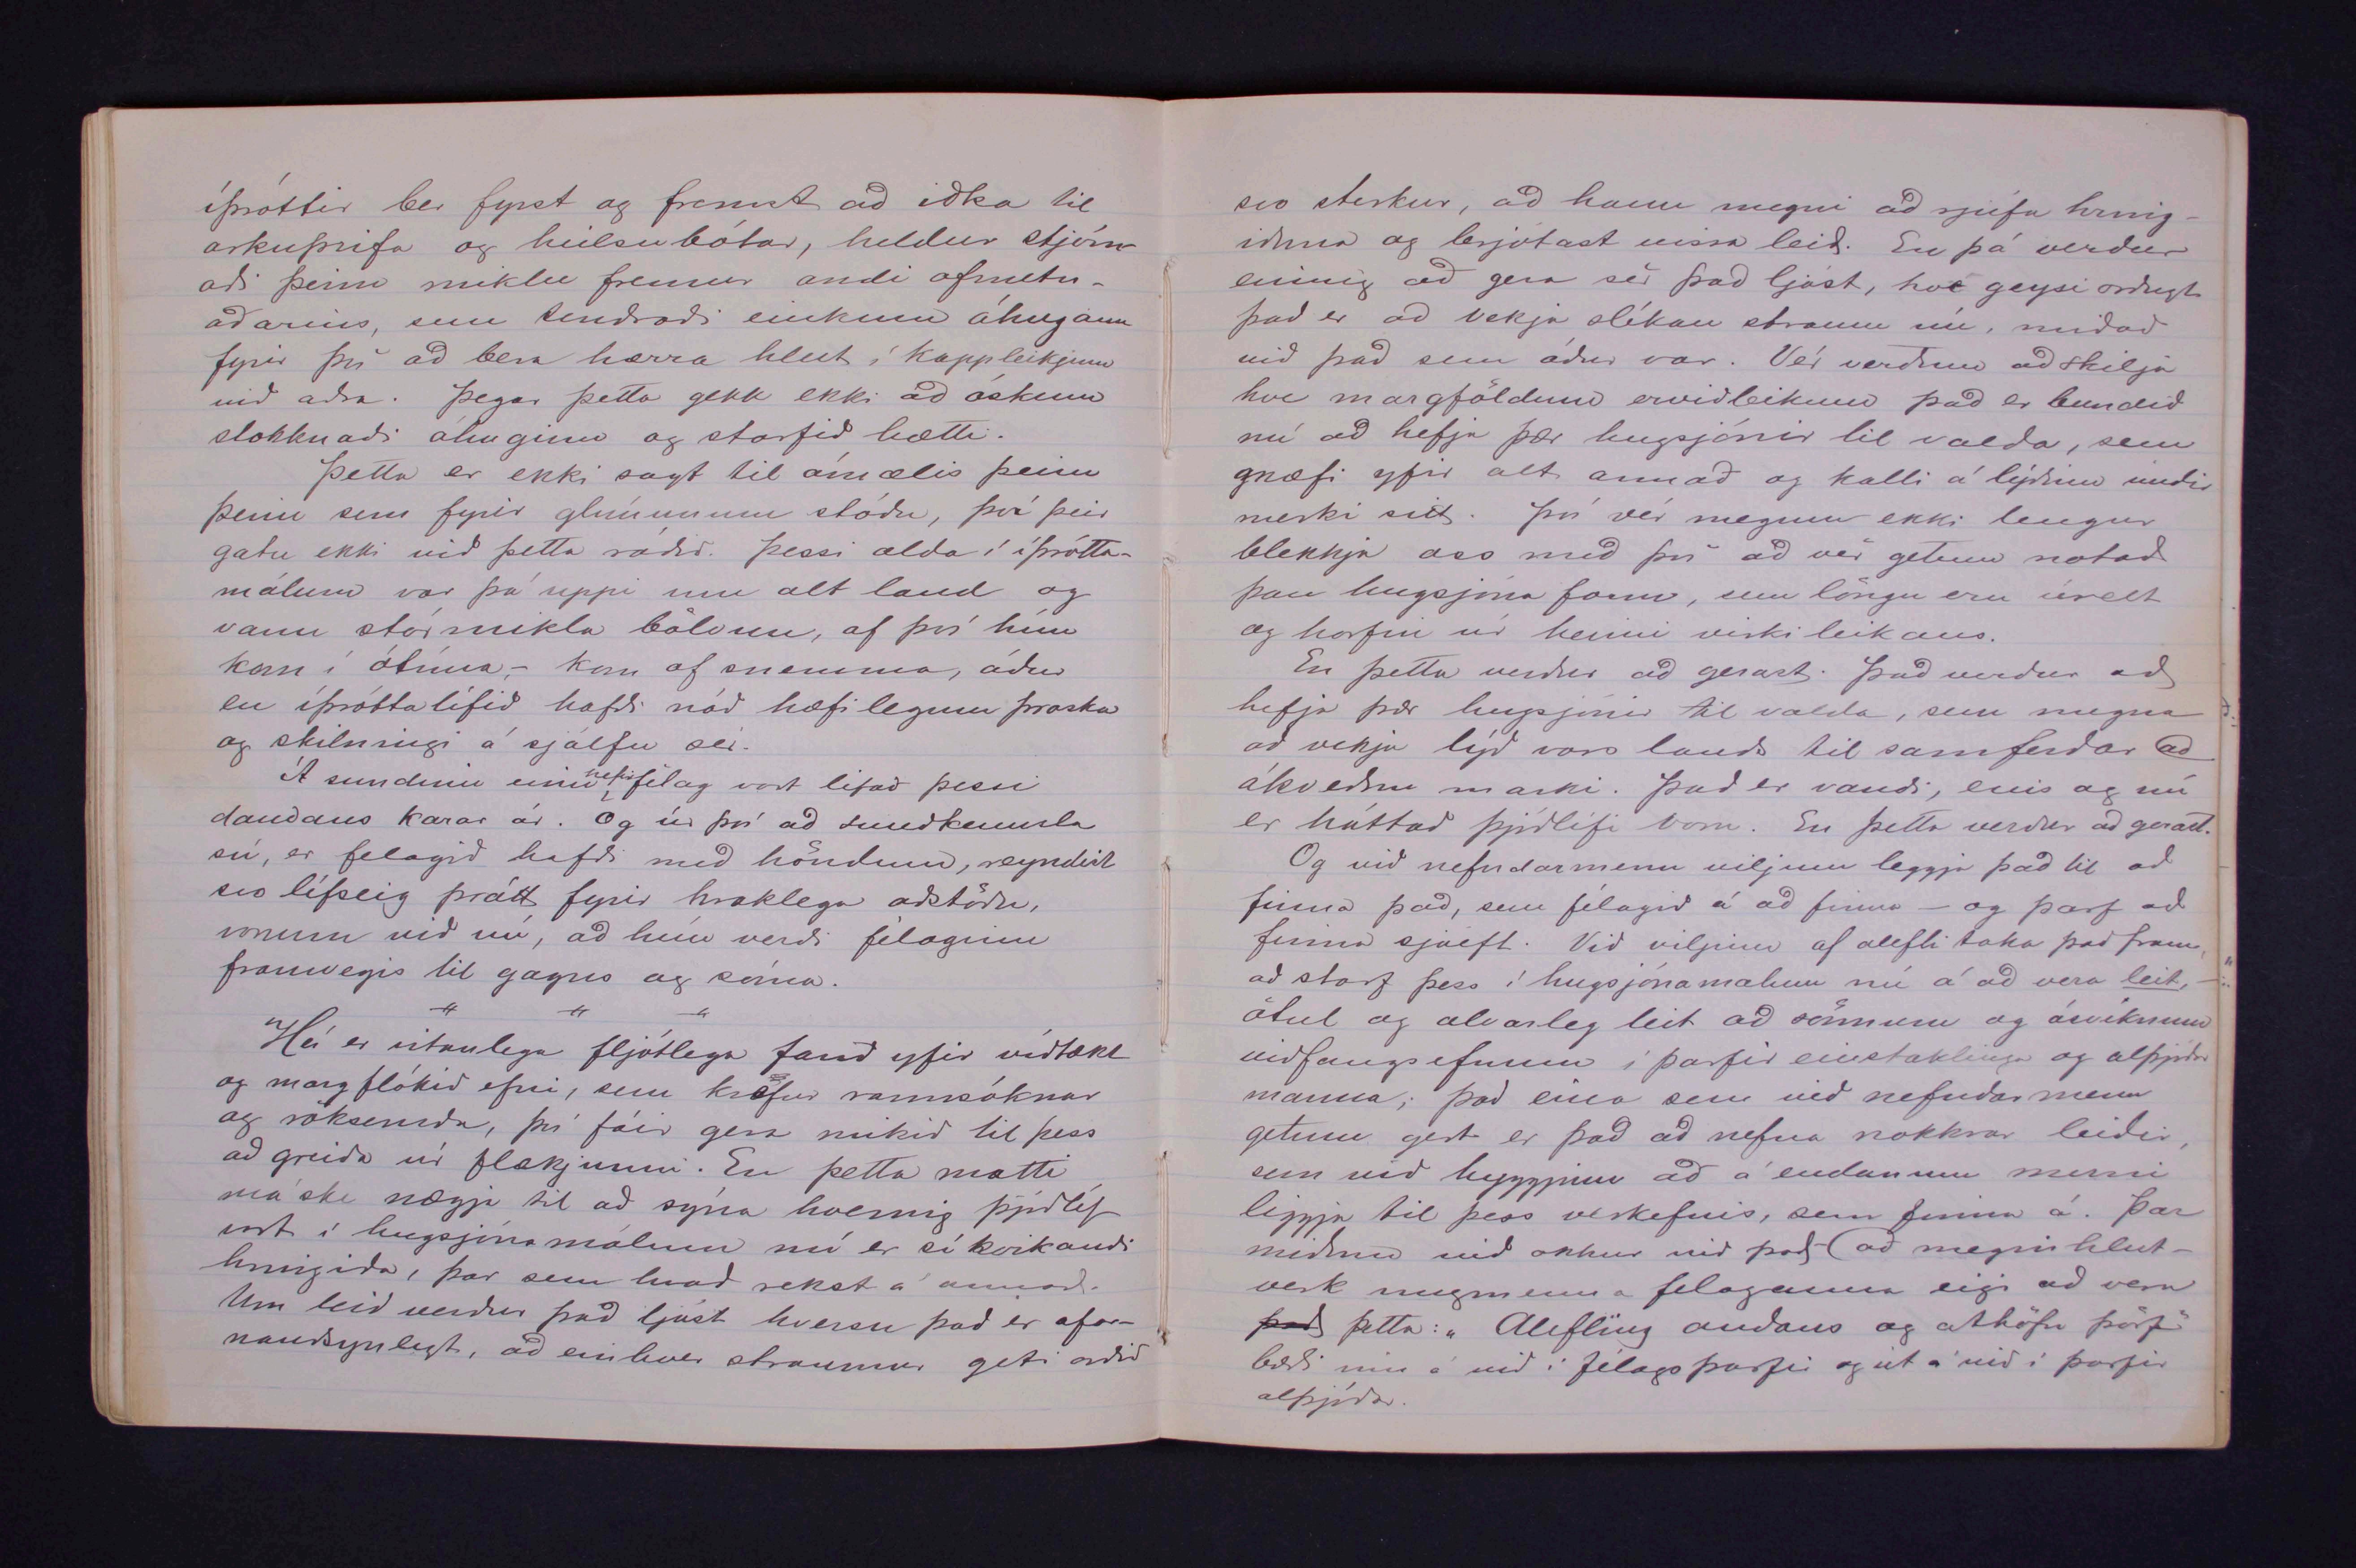 íþróttir ber fyrst og fremst að iðka til
orkuþrifa og heilsubótar, heldur stjórn-
aði þeim miklu fremur andi ofmetn-
aðarins, sem tendraði einkum áhugann
fyrir því að bera hærra hlut í kappleikjum
við aðra. Þegar þetta gekk ekki að óskum
slokknaði áhuginn og starfið hætti.
Þetta er ekki sagt til ámælis þeim
þeim sem fyrir glímunum stóðu, því þeir
gátu ekki við þetta ráðið. Þessi alda í íþrótta-
málum var þá uppi um alt land og
vann stórmikla bölvun, af því hún
kom í ótíma, - kom of snemma, áður
en íþróttalífið hafði náð hæfilegum þroska
og skilningi á sjálfu sér.
Á sundinu einu hefir félag vort lifað þessi
dauðans karar ár. Og úr því að sundkennsla
sú, er félagið hafði með höndum, reyndist
svo lífseig þrátt fyrir hraklega aðstöðu,
vonum við nú, að hún verði félaginu
framvegis til gagns og sóma.
-"- -"- -"-
Hér er vitanlega fljótlega farið yfir víðtækt
og margflókið efni, sem krefur rannsóknar
og röksemda, því fáir gera mikið til þess
að greiða úr flækjunni. En þetta mætti
máske nægja til að sýna hvernig þjóðlíf
vort í hugsjónamálum nú er síkvikandi
hringiða, þar sem hvað rekst á annað.
Um leið verður það ljóst hversu það er afar-
nauðsynlegt, að einhver straumur geti orðið
svo sterkur, að hann megni að rjúfa hring-
iðuna og brjótast vissa leið. En þá verður
einnig að gera sér það ljóst, hve geysi örðugt
það er að vekja slíkan straum nú, miðað
við það sem áður var. Vér verðum að skilja
hve margföldum erviðleikum það er bundið
nú að hefja þær hugsjónir til valda, sem
gnæfi yfir alt annað og kalli á lýðinn undir
merki sitt. Því vér megum ekki lengur
blekkja oss með því að vér getum notað
þau hugsjóna form, sem löngu eru úrelt
og horfin úr heimi virkileikans.
En þetta verður að gerast. Það verður að
hefja þær hugsjónir til valda, sem megna
að vekja lýð vors lands til samferðar að
ákveðnu marki. Það er vandi, eins og nú
er háttað þjóðlífi voru. En þetta verður að gerast.
Og við nefndarmenn viljum leggja það til að
finna það, sem félagið á að finna - og þarf að
finna sjálft. Við viljum af alefli taka það fram,
að starf þess í hugsjónamálum nú á að vera leit, -
ötul og alvarleg leit að sönnum og ósviknum
viðfangsefnum í þarfir einstaklinga og alþjóðar
manna; það eina sem við nefndarmenn
getum gert er það að nefna nokkrar leiðir,
sem við hyggjum að á endanum muni
liggja til þess verkefnis, sem finna á. Þar
miðum við okkur við það (að megin hlut-
verk ungmenna félaganna eigi að vera
það þetta: „Alefling andans og athöfn þörf"
bæði inn á við í félagsþarfir og út á við í þarfir
alþjóðar.